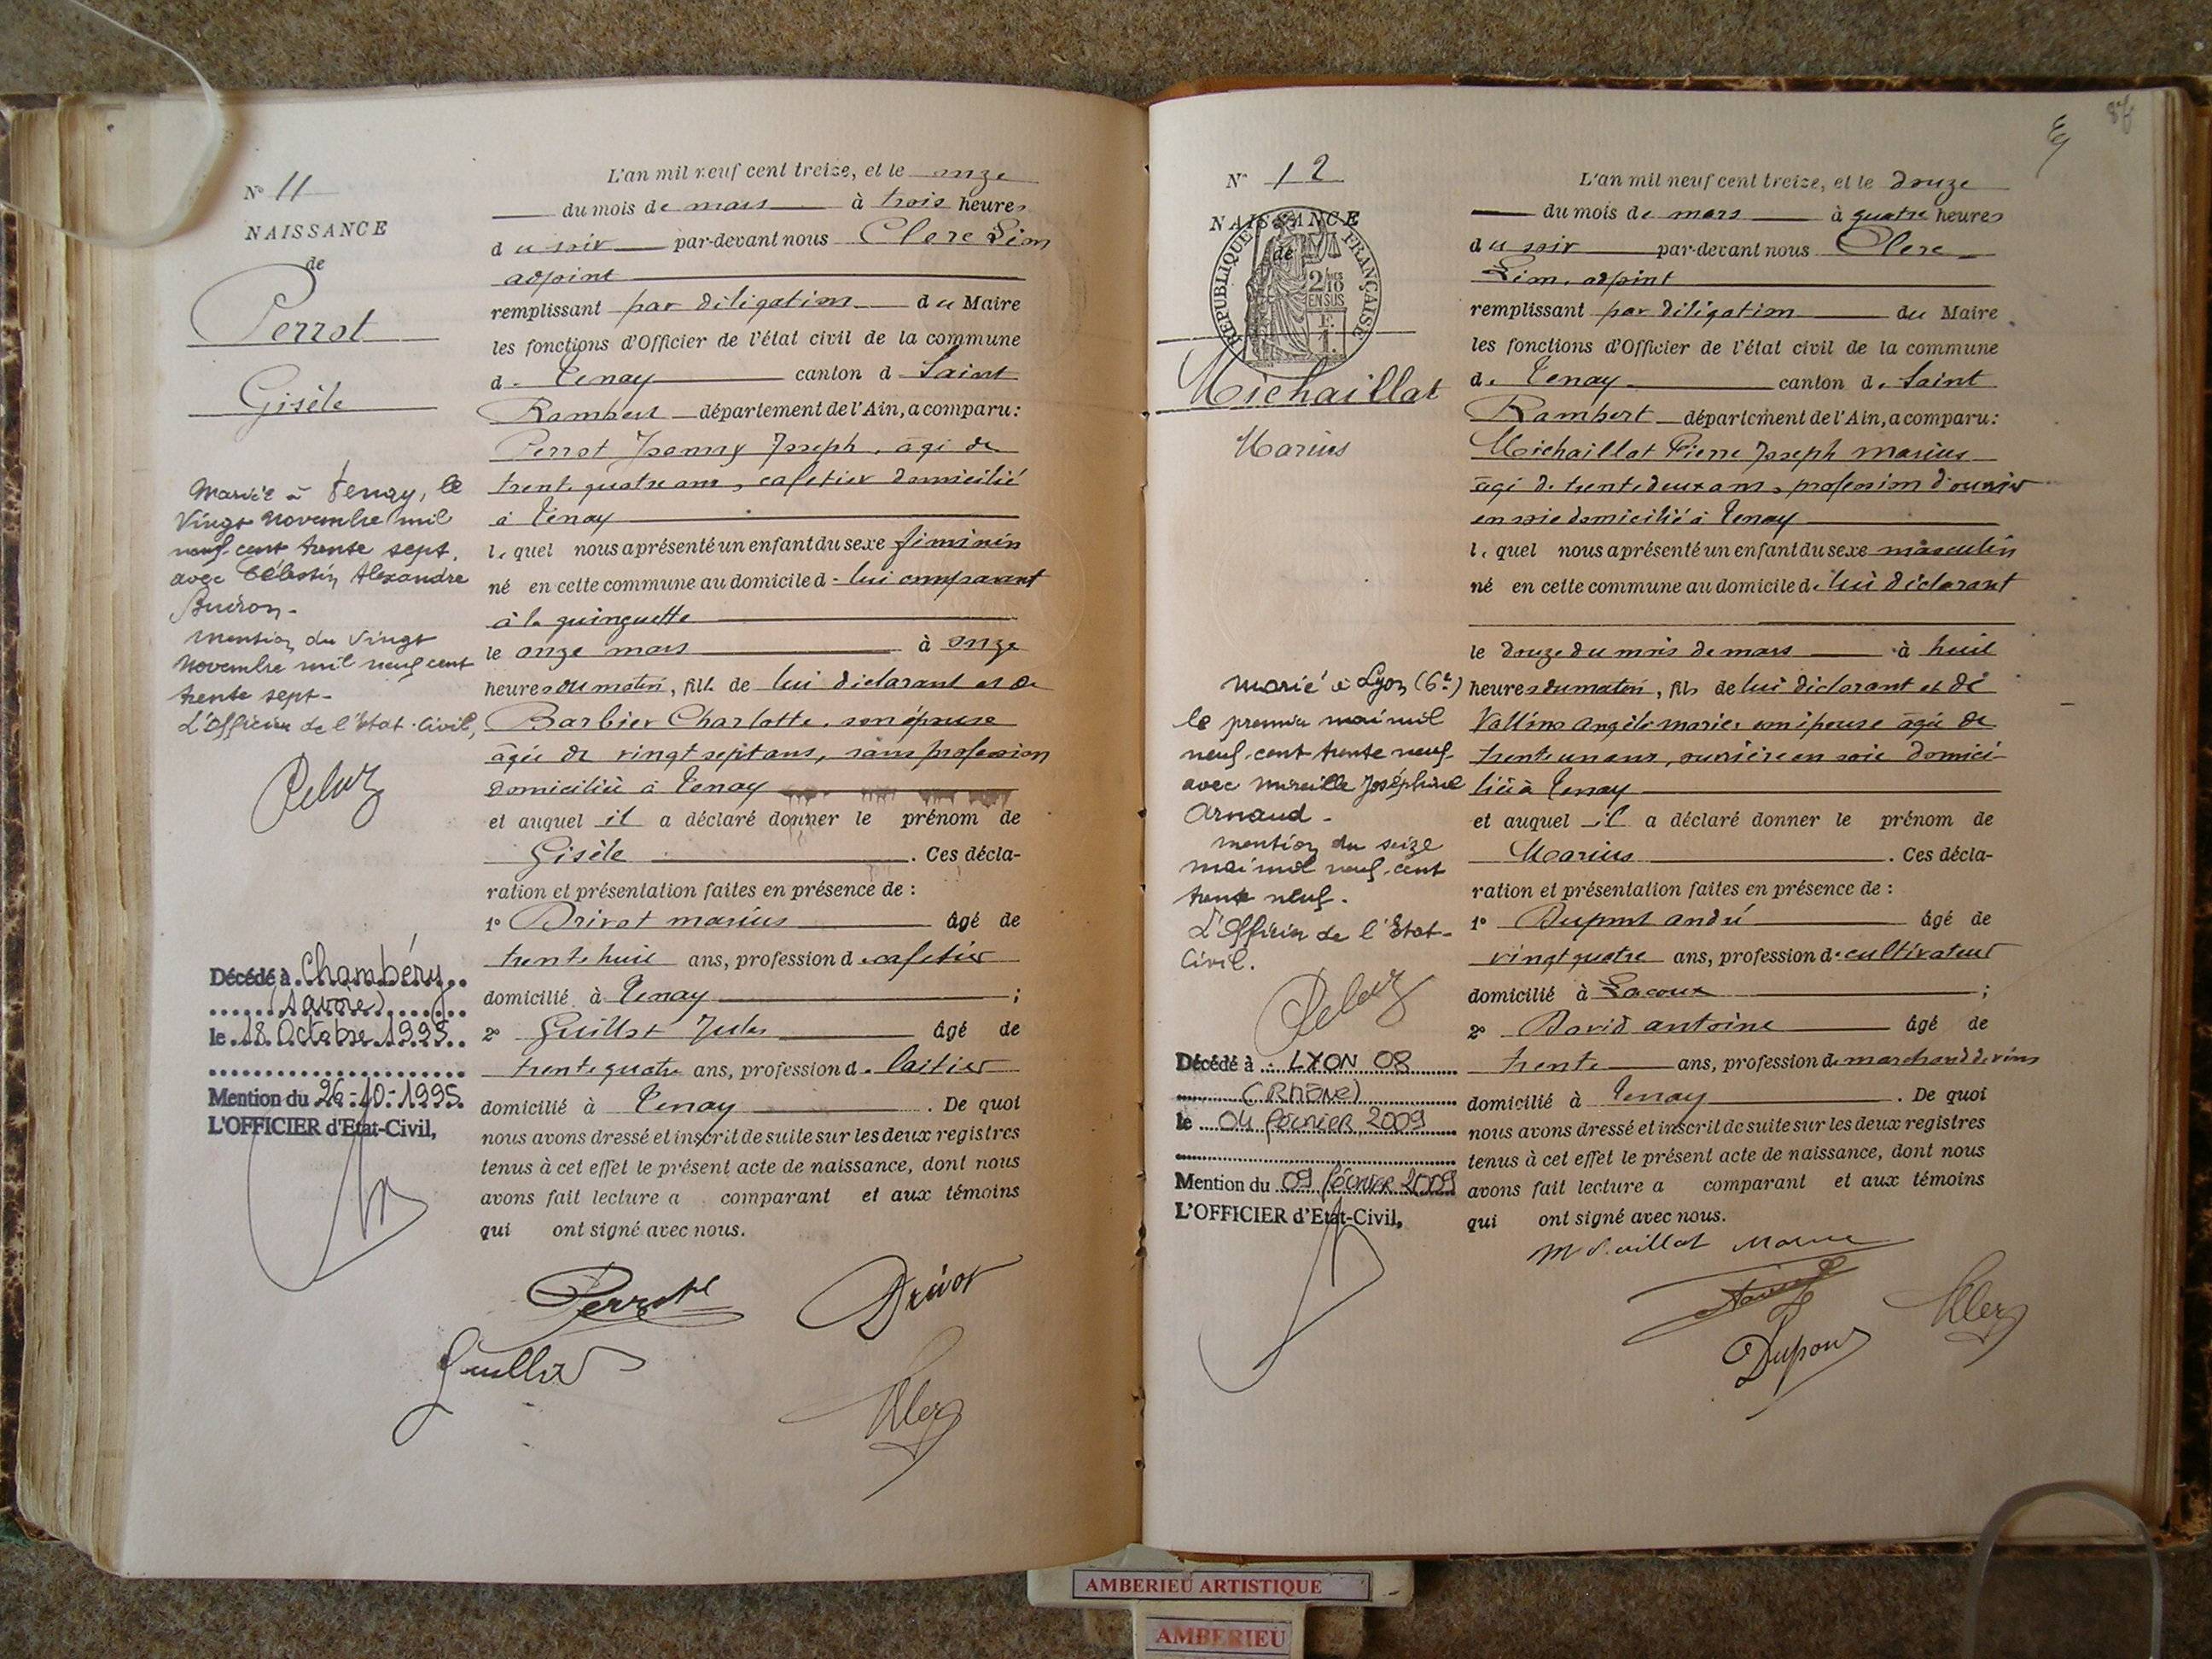 N° 11
NAISSANCE
de
Perrot
Gisèle
Mariée à Tenay, le
vingt novembre mil
neuf cent trente sept,
avec Célestin Alexandre
mention du vingt
novembre mil neuf cent
trente sept -
L'Officier de l'Etat-Civil,
Décédé à Chambéry
(Savoie)
le 18 Octobre 1995
Mention du 26-10-1995
L'OFFICIER d'Etat-Civil,
L'an mil neuf cent treize, et le onze
du mois de mars à trois heures
du soir par-devant nous Clerc Léon
adjoint
remplissant par délégation du Maire
les fonctions d'Officier de l'état civil de la commune
de Tenay canton de Saint
Rambert département de l'Ain, a comparu :
Perrot Joanny Joseph, âgé de
trente quatre ans, cafetier domicilié
à Tenay
lequel nous a présenté un enfant du sexe féminin
né en cette commune au domicile de lui comparant
à la guinguette
le onze mars à onze
heures du matin, fille de lui déclarant et de
Barbier Charlotte, son épouse
âgée de vingt sept ans, sans profession
domiciliée à Tenay
et auquel il a déclaré donner le prénom de
Gisèle . Ces décla-
ration et présentation faites en présence de :
1° Drivot marius âgé de
trente huit ans, profession de cafetier
domicilié à Tenay ;
2° Guillot Jules âgé de
trente quatre ans, profession de laitier
domicilié à Tenay . De quoi
nous avons dressé et inscrit de suite sur les deux registres
tenus à cet effet le présent acte de naissance, dont nous
avons fait lecture a comparant et aux témoins
qui ont signé avec nous.
Perrot
Drivot
Guillot
Clerc
87
N° 12
NAISSANCE
de
RÉPUBLIQUE FRANÇAISE
2/10
EN SUS
Michaillat
Marius
Marié à Lyon (6e)
le premier mai mil
neuf cent trente neuf
avec Mireille Joséphine
Arnaud -
mention du seize
mai mil neuf cent
trente neuf.
L'Officier de l'Etat-
Civil.
Décédé à LYON 08
(RHÔNE)
le 04 février 2009
Mention du 09 février 2009
L'OFFICIER d'Etat-Civil,
L'an mil neuf cent treize, et le douze
du mois de mars à quatre heures
du soir par-devant nous Clerc
Léon, adjoint
remplissant par délégation du Maire
les fonctions d'Officier de l'état civil de la commune
de Tenay canton de Saint
Rambert département de l'Ain, a comparu :
Michaillat Pierre Joseph marius
âgé de trente deux ans, profession d'ouvrier
en soie domicilié à Tenay
lequel nous a présenté un enfant du sexe masculin
né en cette commune au domicile de lui déclarant
le douze du mois de mars à huit
heures du matin, fils de lui déclarant et de
Vallino angèle marie, son épouse âgée de
trente un ans, ouvrière en soie domici-
liée à Tenay
et auquel il a déclaré donner le prénom de
Marius . Ces décla-
ration et présentation faites en présence de :
1° Dupont andré âgé de
vingt quatre ans, profession de cultivateur
domicilié à Lacoux ;
2° David antoine âgé de
trente ans, profession de marchand de vins
domicilié à Tenay . De quoi
nous avons dressé et inscrit de suite sur les deux registres
tenus à cet effet le présent acte de naissance, dont nous
avons fait lecture a comparant et aux témoins
qui ont signé avec nous.
Dupont
Clerc
AMBERIEU ARTISTIQUE
AMBERIEU